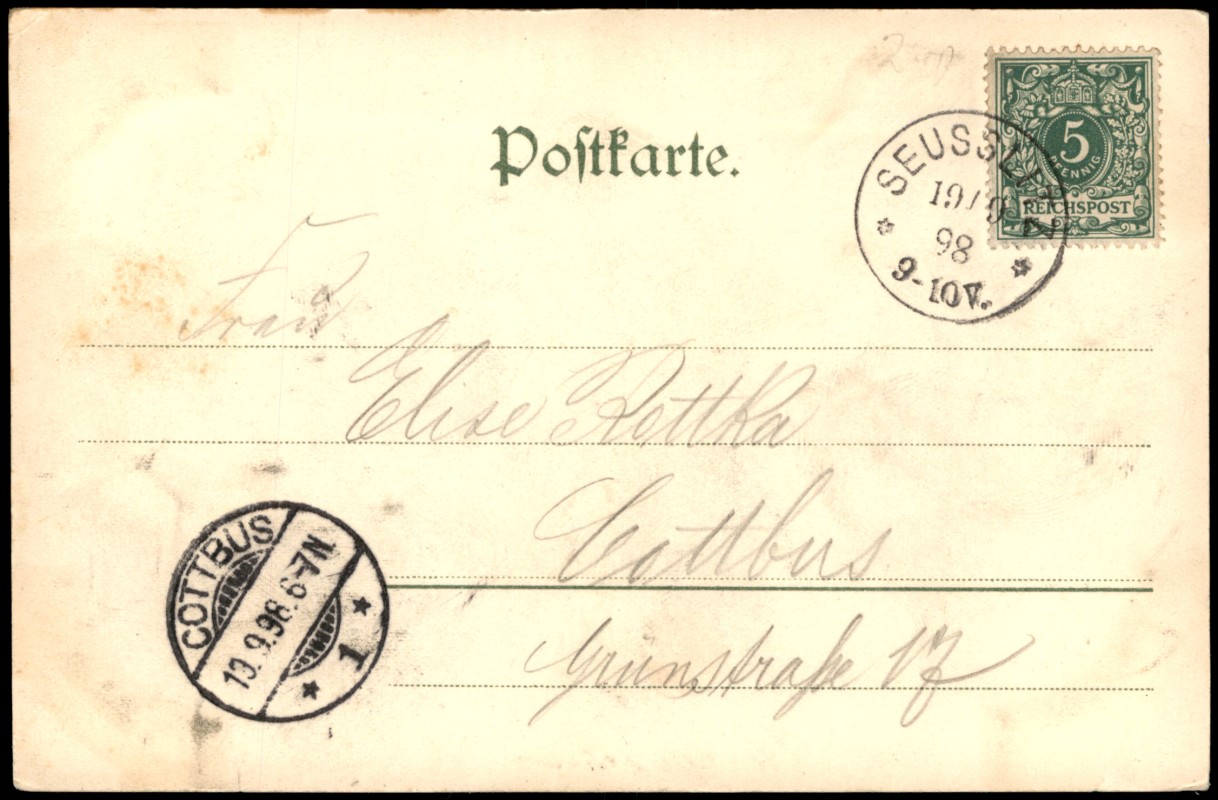 Postkarte.
5
PFENNIG
REICHSPOST
SEUSSLITZ
98
9-10V.
Frau
Elise Rettka
Cottbus
Grünstraße 17
COTTBUS
13.9.98.6-7N.
1